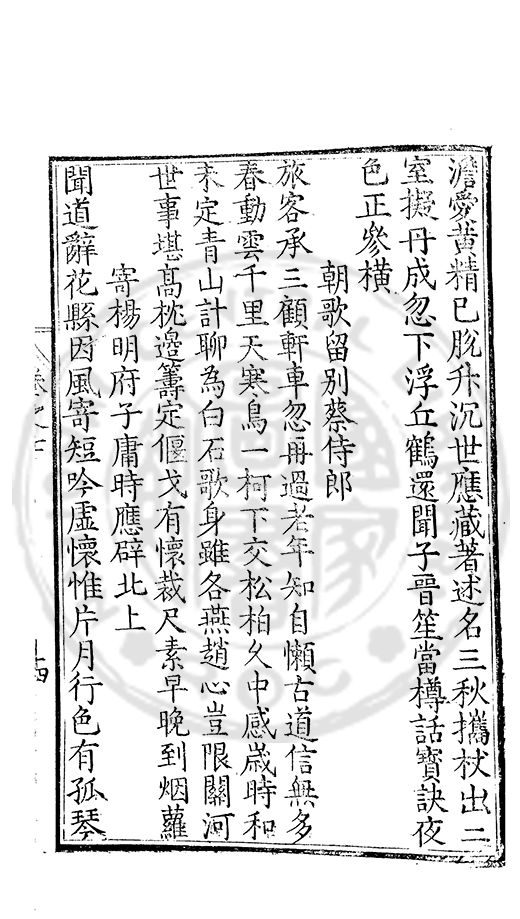 澹愛黄精已脫升沉世應藏著述名三秋攜杖出二
室擬丹成忽下浮丘鶴還聞子晉笙當樽話寶訣夜
色正參橫
朝歌留别蔡侍郎
旅客承三顧軒車忽再過老年知自懶古道信無多
春動雲千里天寒鳥一柯下交松柏久中感歲時和
未定青山計聊為白石歌身雖各燕趙心豈限關河
世事堪高枕邉籌定偃戈有懷裁尺素早晚到烟蘿
寄楊明府子庸時應辟北上
聞道辭花縣因風寄短吟虛懷惟片月行色有孤琴